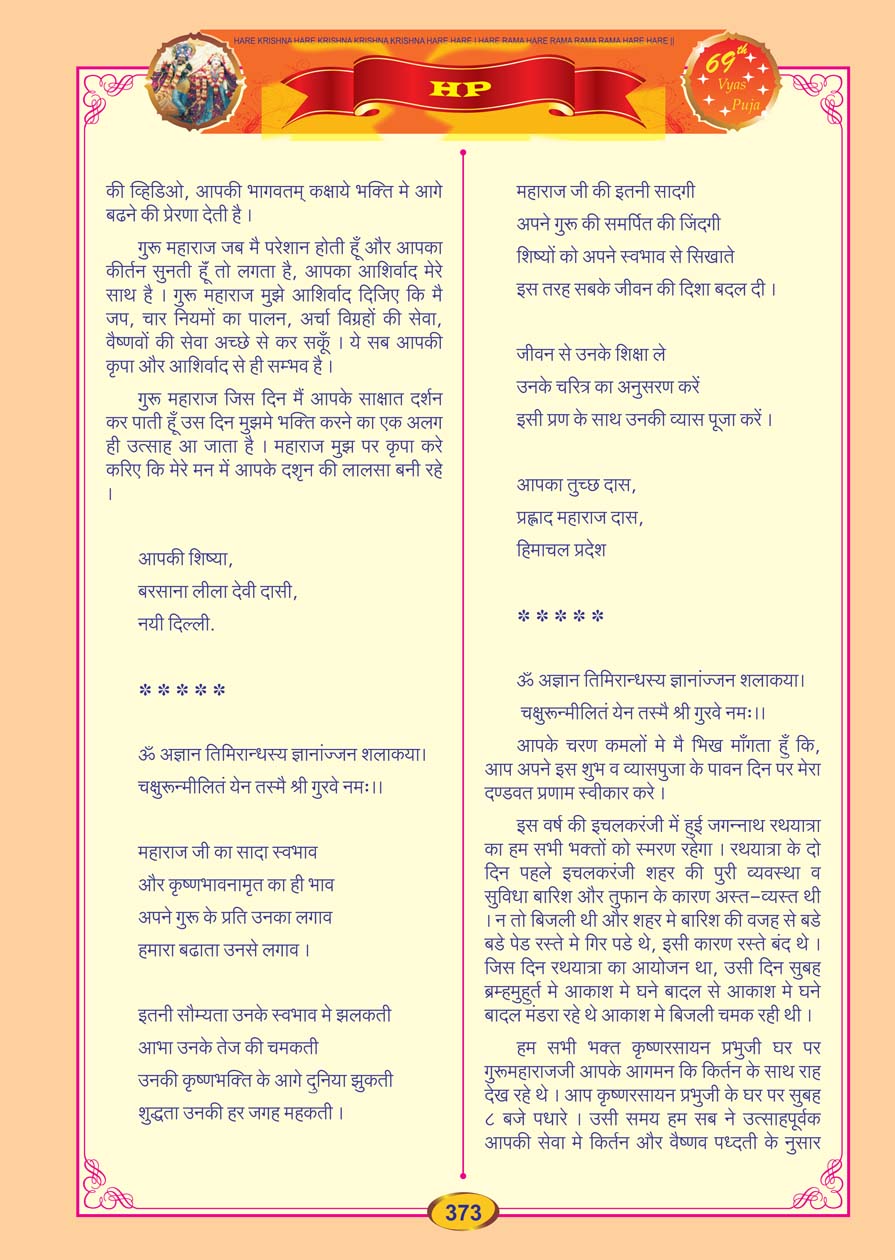 HARE KRISHNA HARE KRISHNA KRISHNA KRISHNA HARE HARE | HARE RAMA HARE RAMA RAMA RAMA HARE HARE ||
HP
69th
Vyas
Puja
की व्हिडिओ, आपकी भागवतम् कक्षाये भक्ति मे आगे
बढने की प्रेरणा देती है ।
गुरू महाराज जब मै परेशान होती हूँ और आपका
कीर्तन सुनती हूँ तो लगता है, आपका आशिर्वाद मेरे
साथ है । गुरू महाराज मुझे आशिर्वाद दिजिए कि मै
जप, चार नियमों का पालन, अर्चा विग्रहों की सेवा,
वैष्णवों की सेवा अच्छे से कर सकूँ । ये सब आपकी
कृपा और आशिर्वाद से ही सम्भव है ।
गुरू महाराज जिस दिन मैं आपके साक्षात दर्शन
कर पाती हूँ उस दिन मुझमे भक्ति करने का एक अलग
ही उत्साह आ जाता है । महाराज मुझ पर कृपा करे
करिए कि मेरे मन में आपके दशृन की लालसा बनी रहे
।
आपकी शिष्या,
बरसाना लीला देवी दासी,
नयी दिल्ली.
* * * * *
ॐ अज्ञान तिमिरान्धस्य ज्ञानांज्जन शलाकया।
चक्षुरून्मीलितं येन तस्मै श्री गुरवे नमः।।
महाराज जी का सादा स्वभाव
और कृष्णभावनामृत का ही भाव
अपने गुरू के प्रति उनका लगाव
हमारा बढाता उनसे लगाव ।
इतनी सौम्यता उनके स्वभाव मे झलकती
आभा उनके तेज की चमकती
उनकी कृष्णभक्ति के आगे दुनिया झुकती
शुद्धता उनकी हर जगह महकती ।
महाराज जी की इतनी सादगी
अपने गुरू की समर्पित की जिंदगी
शिष्यों को अपने स्वभाव से सिखाते
इस तरह सबके जीवन की दिशा बदल दी ।
जीवन से उनके शिक्षा ले
उनके चरित्र का अनुसरण करें
इसी प्रण के साथ उनकी व्यास पूजा करें ।
आपका तुच्छ दास,
प्रह्लाद महाराज दास,
हिमाचल प्रदेश
* * * * *
ॐ अज्ञान तिमिरान्धस्य ज्ञानांज्जन शलाकया।
चक्षुरून्मीलितं येन तस्मै श्री गुरवे नमः।।
आपके चरण कमलों मे मै भिख माँगता हुँ कि,
आप अपने इस शुभ व व्यासपुजा के पावन दिन पर मेरा
दण्डवत प्रणाम स्वीकार करे ।
इस वर्ष की इचलकरंजी में हुई जगन्नाथ रथयात्रा
का हम सभी भक्तों को स्मरण रहेगा । रथयात्रा के दो
दिन पहले इचलकरंजी शहर की पुरी व्यवस्था व
सुविधा बारिश और तुफान के कारण अस्त-व्यस्त थी
। न तो बिजली थी और शहर मे बारिश की वजह से बडे
बडे पेड रस्ते मे गिर पडे थे, इसी कारण रस्ते बंद थे ।
जिस दिन रथयात्रा का आयोजन था, उसी दिन सुबह
ब्रम्हमुहुर्त मे आकाश मे घने बादल से आकाश मे घने
बादल मंडरा रहे थे आकाश मे बिजली चमक रही थी ।
हम सभी भक्त कृष्णरसायन प्रभुजी घर पर
गुरूमहाराजजी आपके आगमन कि किर्तन के साथ राह
देख रहे थे । आप कृष्णरसायन प्रभुजी के घर पर सुबह
८ बजे पधारे । उसी समय हम सब ने उत्साहपूर्वक
आपकी सेवा मे किर्तन और वैष्णव पध्दती के नुसार
373